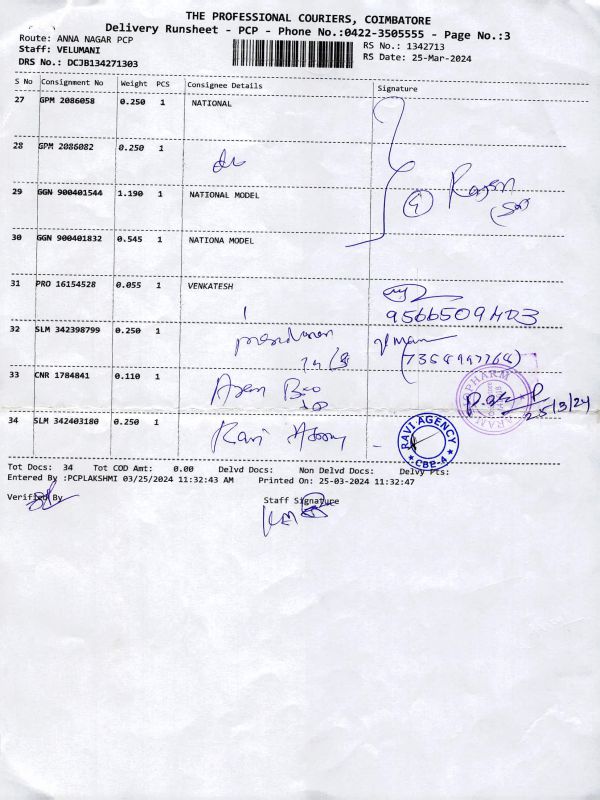 THE PROFESSIONAL COURIERS, COIMBATORE
Delivery Runsheet - PCP - Phone No.:0422-3505555 - Page No.:3
Route: ANNA NAGAR PCP
RS No.: 1342713
Staff: VELUMANI
RS Date: 25-Mar-2024
DRS No.: DCJB134271303
S No Consignment No Weight PCS Consignee Details Signature
27 GPM 2086058 0.250 1 NATIONAL
28 GPM 2086082 0.250 1
29 GGN 900401544 1.190 1 NATIONAL MODEL
30 GGN 900401832 0.545 1 NATIONA MODEL
31 PRO 16154528 0.055 1 VENKATESH
32 SLM 342398799 0.250 1
33 CNR 1784841 0.110 1
25/3/24
34 SLM 342403180 0.250 1 Ravi
RAVI AGENCY
CBE-4
Tot Docs: 34 Tot COD Amt: 0.00 Delvd Docs: Non Delvd Docs: Delvy Pts:
Entered By :PCPLAKSHMI 03/25/2024 11:32:43 AM Printed On: 25-03-2024 11:32:47
Verified By Staff Signature